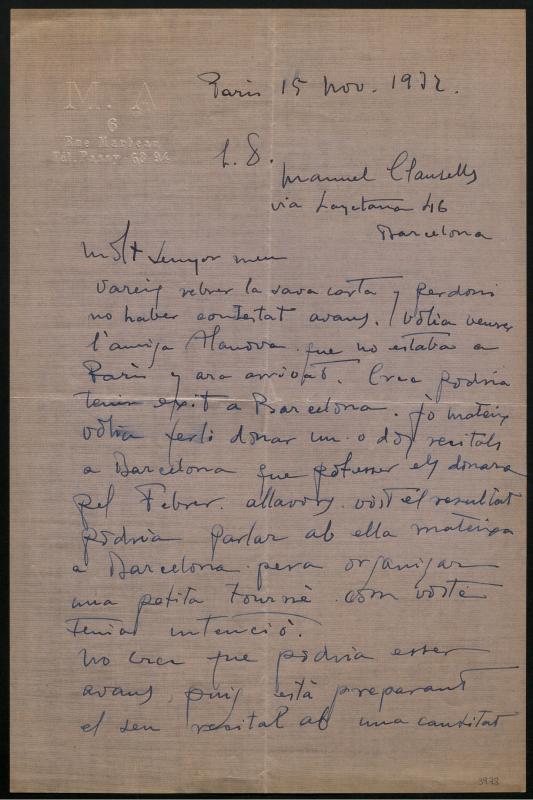 M. A
6
Rue Marbeau
Tél. Passy 63 94
Paris 15 Nov. 1932.
S. D.
Manuel Clausells
via Layetana 46
Barcelona
Molt senyor meu
Vareig rebrer la sava carta y perdoni
no haber contestat avans. Volia veurer
l'amiga Alanova que no estaba a
Paris y ara arrivat. Crec podria
tenir exit a Barcelona. Jo mateix
volia ferli donar un o dos recitals
a Barcelona que potsser els donara
pel Febrer. allavors vist el resultat
podria parlar ab ella mateixa
a Barcelona pera organisar
una petita tourné com vosté
tenia intenció.
No crec que podria esser
avans, puig està preparant
el seu recital ab una cantitat
3973